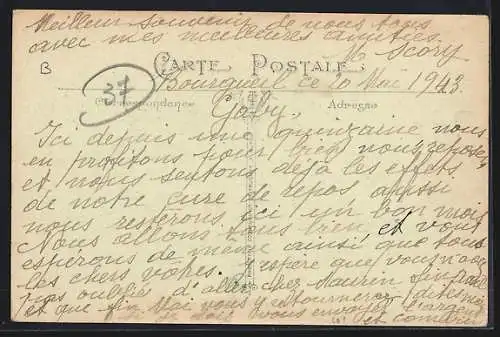 Meilleur souvenir de nous tous
avec mes meilleures amitiés
M Scory
B
CARTE POSTALE
37
Bourgueil ce 20 Mai 1943.
Correspondance
Adresse
Gaby,
Ici depuis une quinzaine nous
en profitons pour bien nous reposer
et nous sentons déjà les effets
de notre cure de repos, aussi
nous resterons ici un bon mois
Nous allons tous bien, et vous
espérons de même ainsi que tous
les chers vôtres. J'espère que vous n'avez
pas oubliés d'aller chez Maurin
et que fin Mai vous y retournerez, dites moi
vous envoyer l'argent
et combien